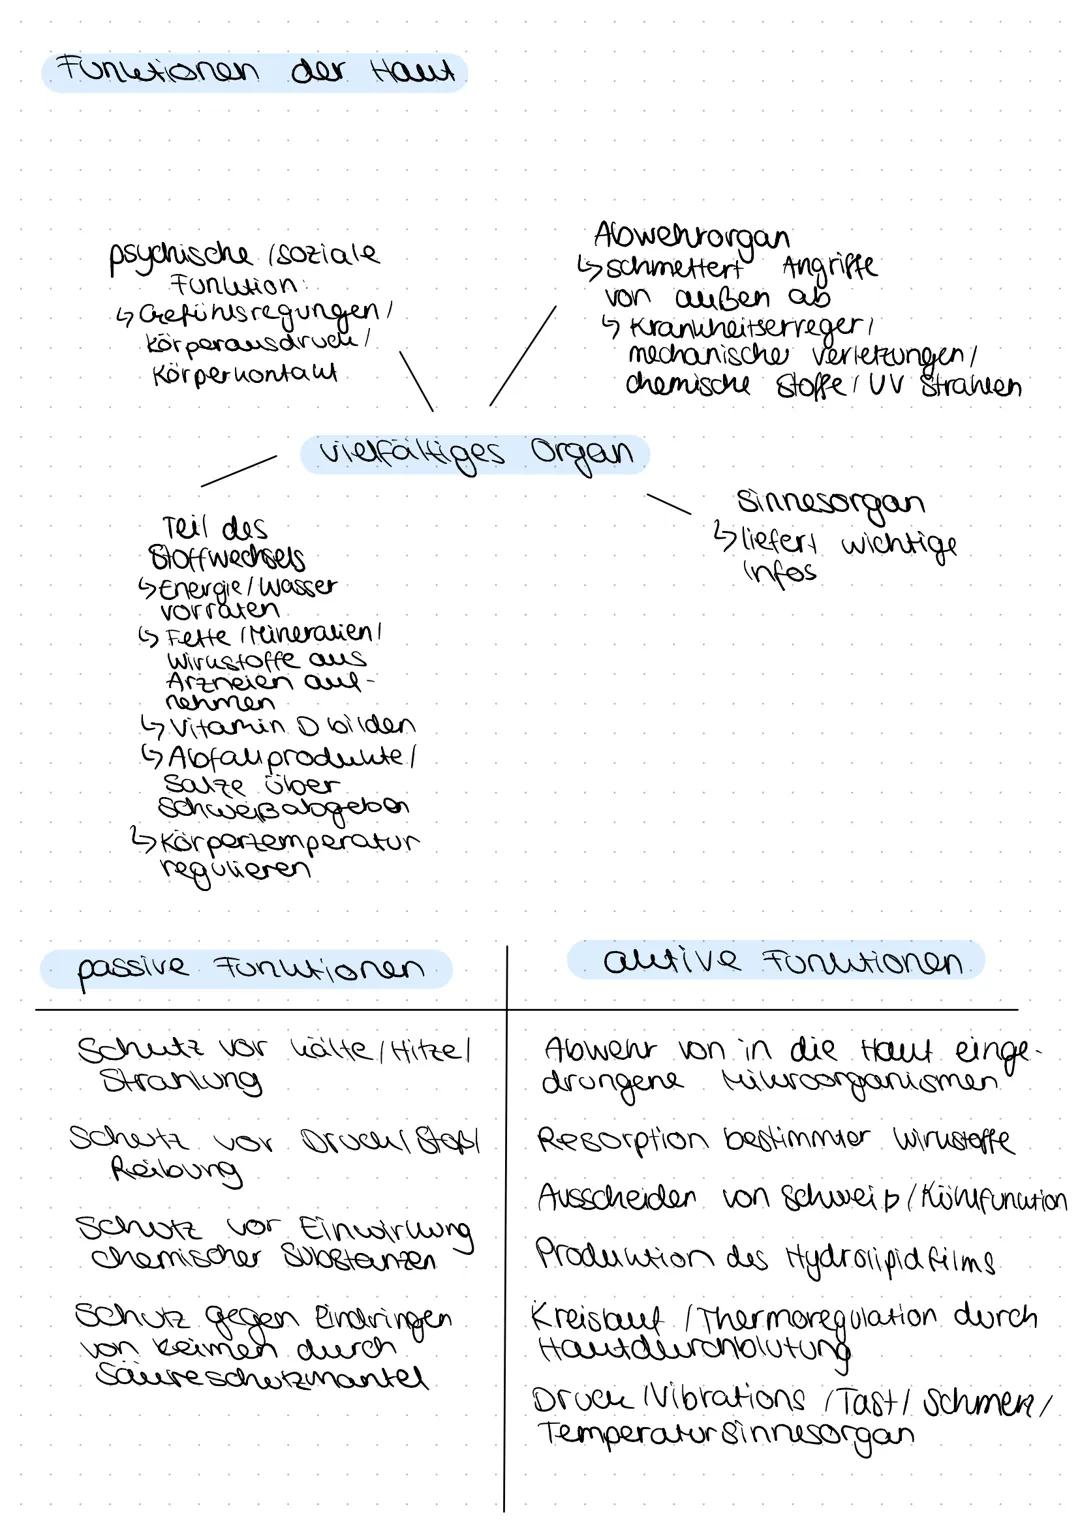 Funktionen der Haut
psychische / soziale
Funktion:
↳ Gefühlsregungen /
Körperausdruck /
Körperkontakt
Abwehrorgan
↳ schmettert Angriffe
von außen ab
↳ Krankheitserreger /
mechanische Verletzungen /
chemische Stoffe / UV Strahlen
vielfältiges Organ
Teil des
Stoffwechsels
↳ Energie / Wasser
vorräten
↳ Fette / Mineralien /
Wirkstoffe aus
Arzneien auf-
nehmen
↳ Vitamin D bilden
↳ Abfallprodukte /
Salze über
Schweiß abgeben
↳ Körpertemperatur
regulieren
Sinnesorgan
↳ liefert wichtige
Infos
passive Funktionen
Schutz vor Kälte / Hitze /
Strahlung
Schutz vor Druck / Stoß /
Reibung
Schutz vor Einwirkung
chemischer Substanzen
Schutz gegen Eindringen
von Keimen durch
Säureschutzmantel
aktive Funktionen
Abwehr von in die Haut einge-
drungene Mikroorganismen
Resorption bestimmter Wirkstoffe
Ausscheiden von Schweiß / Kühlfunktion
Produktion des Hydrolipidfilms
Kreislauf / Thermoregulation durch
Hautdurchblutung
Druck / Vibrations / Tast / Schmerz /
Temperatursinnesorgan